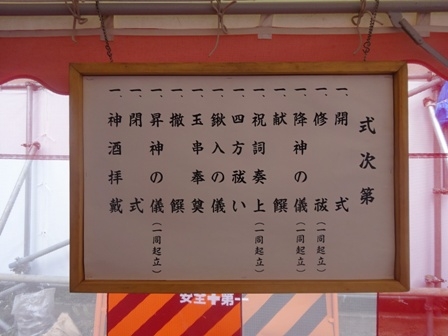 式次第
一、開式
一、修祓（一同起立）
一、降神の儀（一同起立）
一、献饌
一、祝詞奏上（一同起立）
一、四方祓い
一、鍬入の儀
一、玉串奉奠
一、撤饌
一、昇神の儀（一同起立）
一、閉式
一、神酒拝戴
安全✚第一